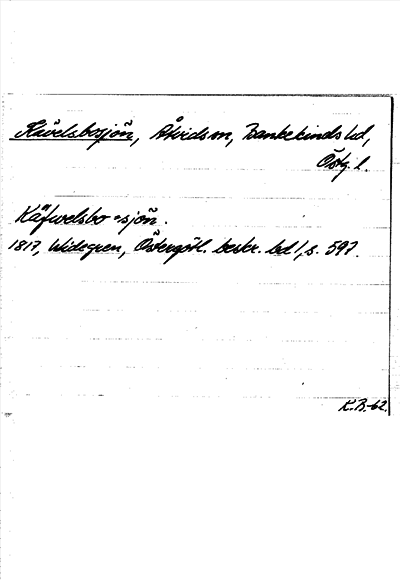 Kävelsbosjön, Åtvids sn, Bankekinds hd,
Östg. l.
Käfwelsbo-sjön.
1817, Widegren, Östergötl. beskr. bd 1, s. 597.
K.B.-62.